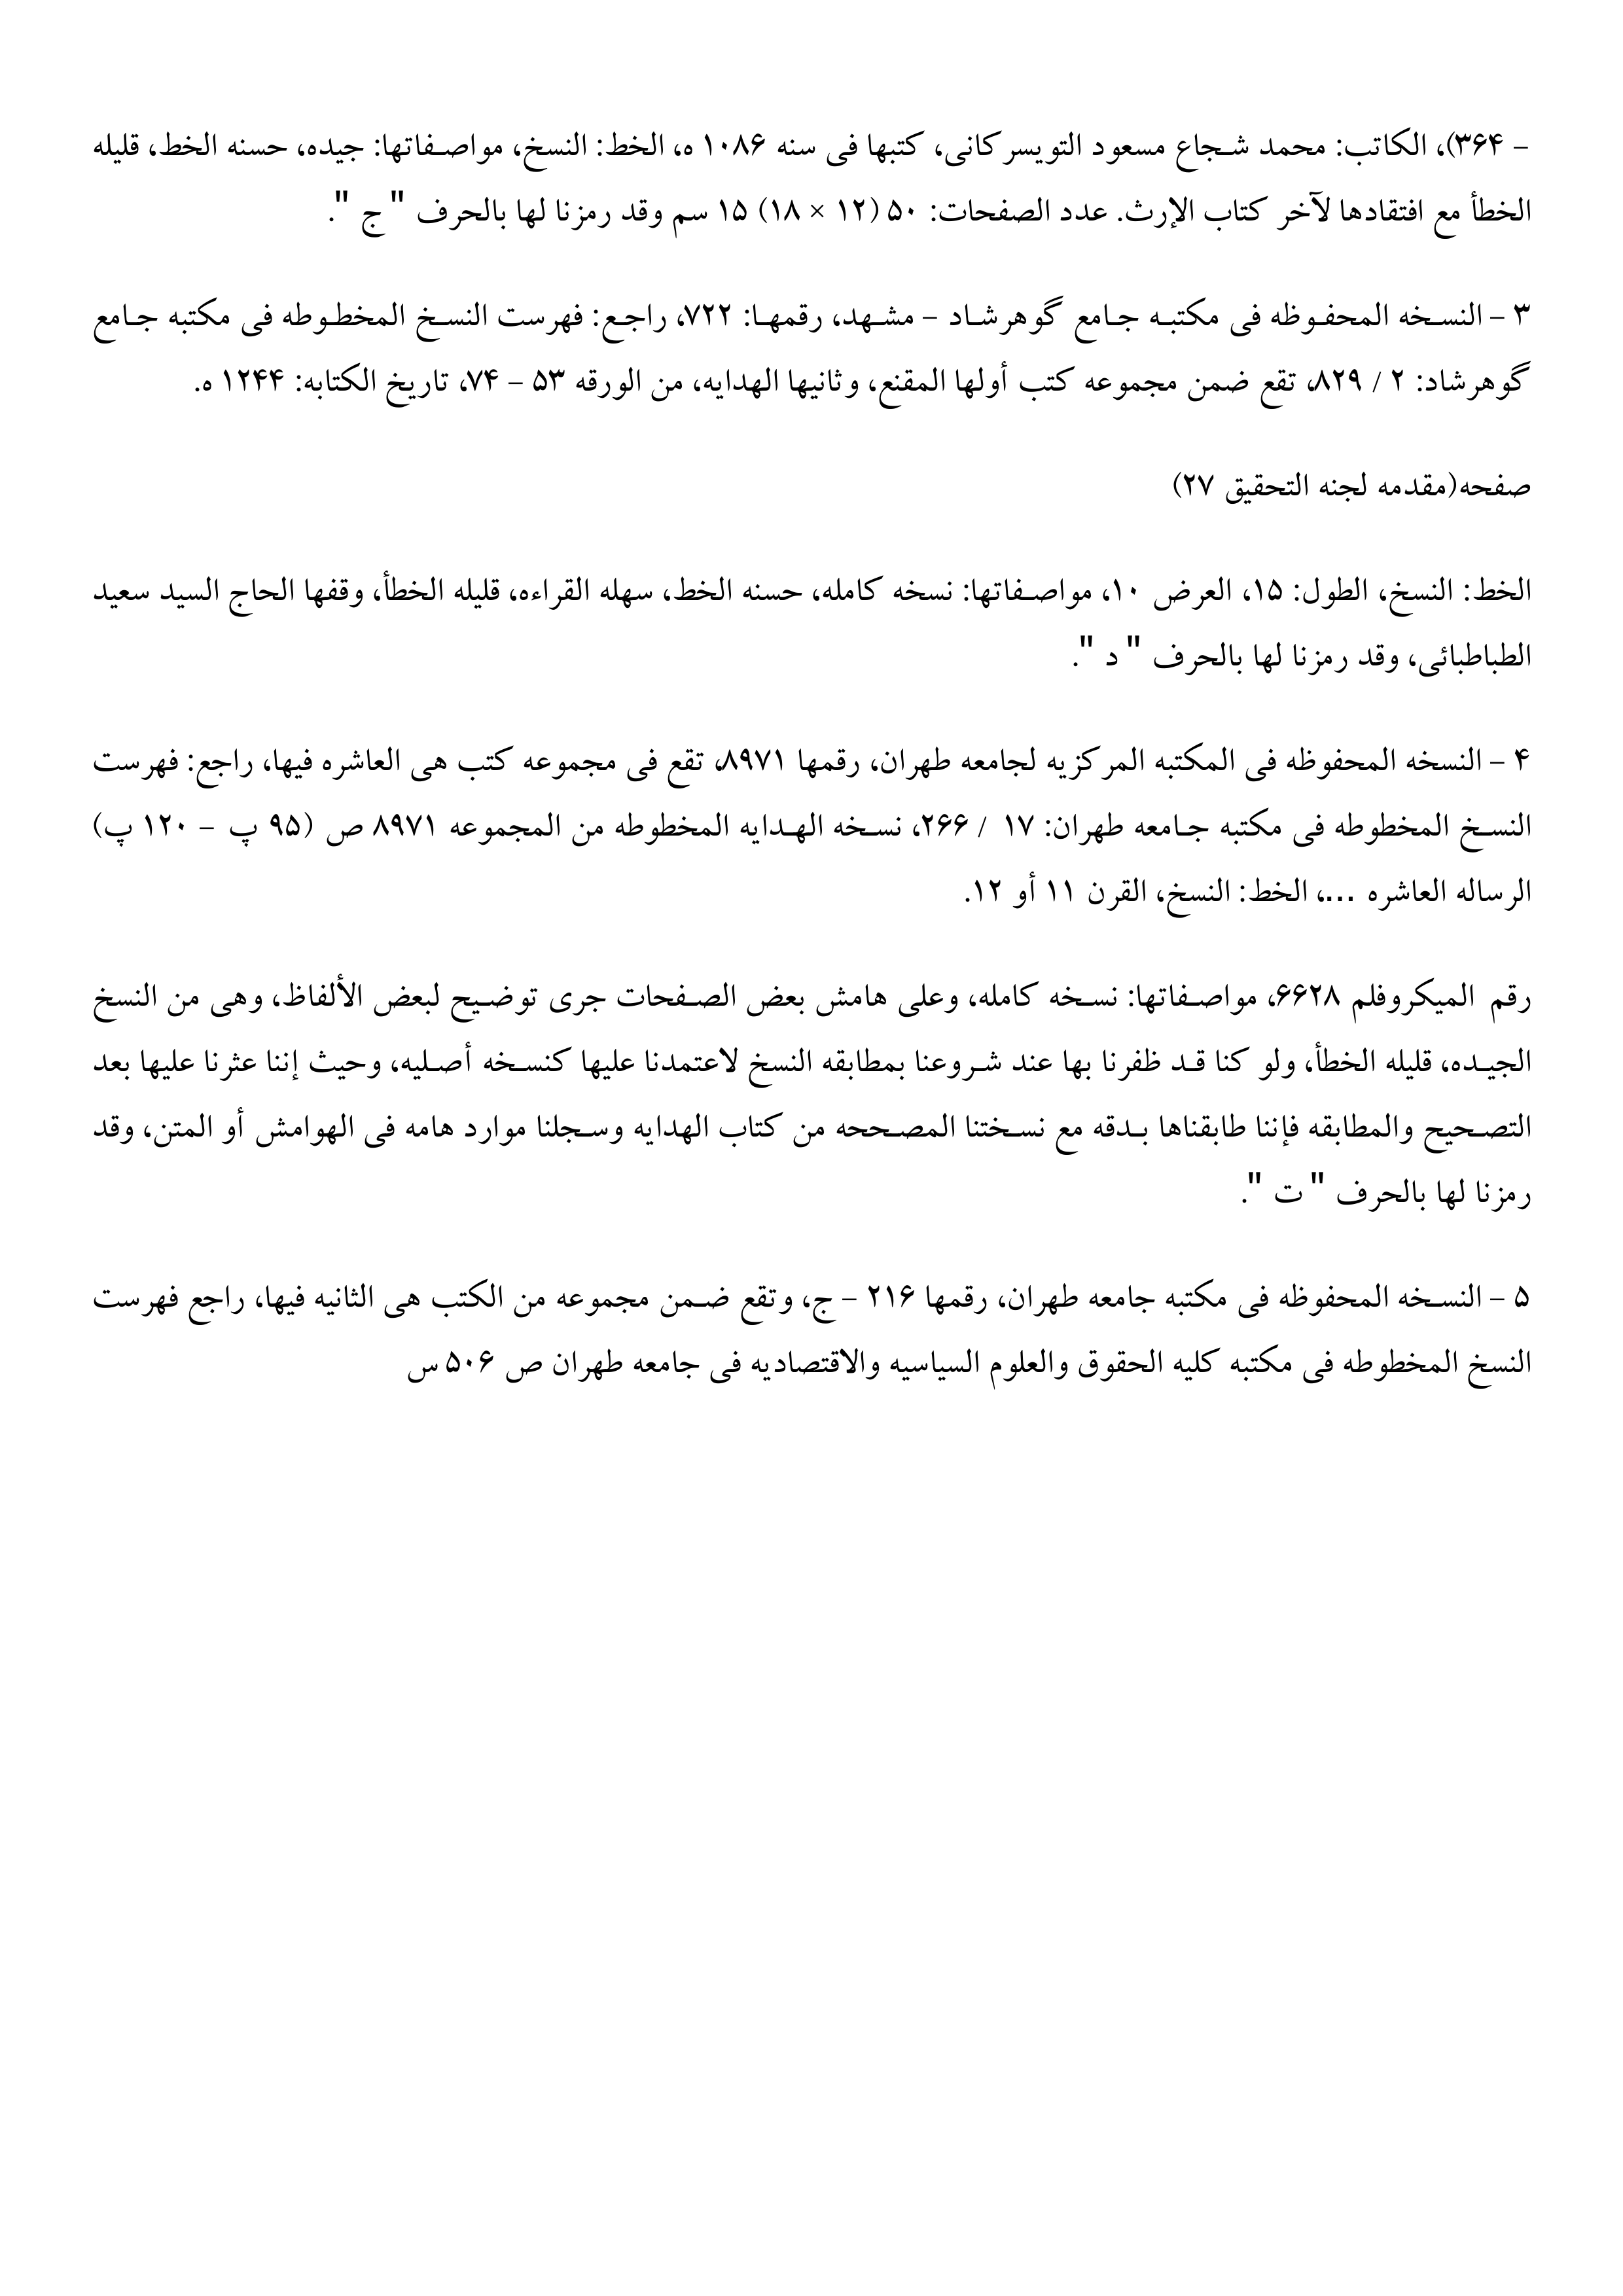 – ۳۶۴)، الکاتب: محمد شجاع مسعود التویسرکانی، کتبها فی سنه ۱۰۸۶ ه، الخط: النسخ، مواصفاتها: جیده، حسنه الخط، قلیله
الخطأ مع افتقادها لآخر کتاب الإرث. عدد الصفحات: ۵۰ (۱۲ × ۱۸) ۱۵ سم وقد رمزنا لها بالحرف " ج ".
۳ – النسخه المحفوظه فی مکتبه جامع گوهرشاد – مشهد، رقمها: ۷۲۲، راجع: فهرست النسخ المخطوطه فی مکتبه جامع
گوهرشاد: ۲ / ۸۲۹، تقع ضمن مجموعه کتب أولها المقنع، وثانیها الهدایه، من الورقه ۵۳ – ۷۴، تاریخ الکتابه: ۱۲۴۴ ه.
صفحه(مقدمه لجنه التحقیق ۲۷)
الخط: النسخ، الطول: ۱۵، العرض ۱۰، مواصفاتها: نسخه کامله، حسنه الخط، سهله القراءه، قلیله الخطأ، وقفها الحاج السید سعید
الطباطبائی، وقد رمزنا لها بالحرف " د ".
۴ – النسخه المحفوظه فی المکتبه المرکزیه لجامعه طهران، رقمها ۸۹۷۱، تقع فی مجموعه کتب هی العاشره فیها، راجع: فهرست
النسخ المخطوطه فی مکتبه جامعه طهران: ۱۷ / ۲۶۶، نسخه الهدایه المخطوطه من المجموعه ۸۹۷۱ ص (۹۵ پ – ۱۲۰ پ)
الرساله العاشره ...، الخط: النسخ، القرن ۱۱ أو ۱۲.
رقم المیکروفلم ۶۶۲۸، مواصفاتها: نسخه کامله، وعلی هامش بعض الصفحات جری توضیح لبعض الألفاظ، وهی من النسخ
الجیده، قلیله الخطأ، ولو کنا قد ظفرنا بها عند شروعنا بمطابقه النسخ لاعتمدنا علیها کنسخه أصلیه، وحیث إننا عثرنا علیها بعد
التصحیح والمطابقه فإننا طابقناها بدقه مع نسختنا المصححه من کتاب الهدایه وسجلنا موارد هامه فی الهوامش أو المتن، وقد
رمزنا لها بالحرف " ت ".
۵ – النسخه المحفوظه فی مکتبه جامعه طهران، رقمها ۲۱۶ – ج، وتقع ضمن مجموعه من الکتب هی الثانیه فیها، راجع فهرست
النسخ المخطوطه فی مکتبه کلیه الحقوق والعلوم السیاسیه والاقتصادیه فی جامعه طهران ص ۵۰۶ س